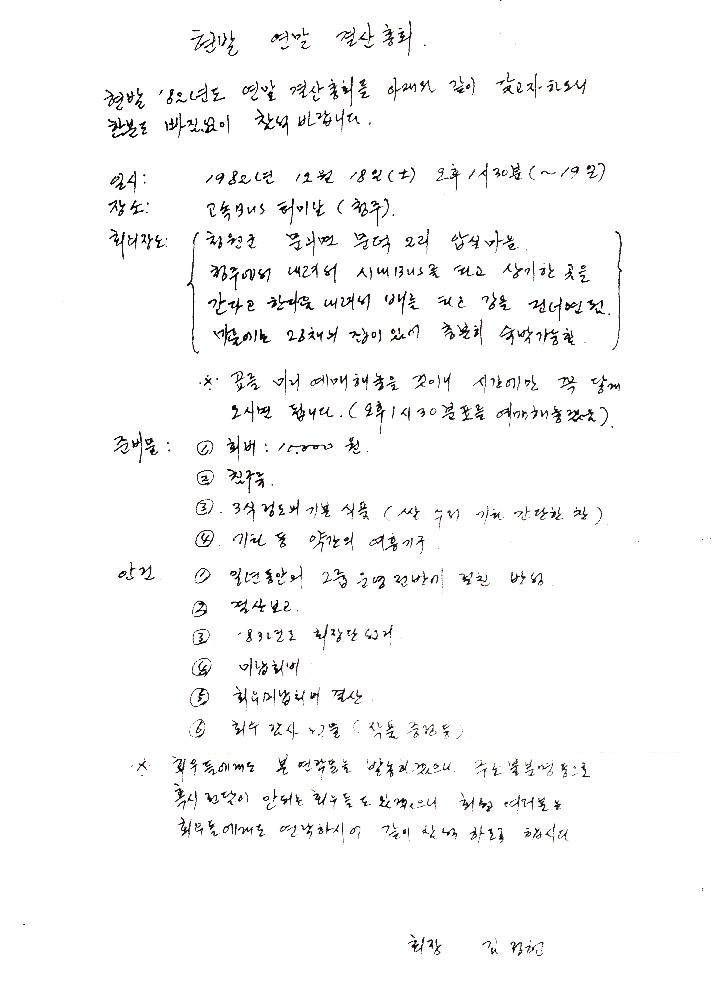 현발 연말 결산총회.
현발 '82년도 연말 결산총회를 아래와 같이 갖고자 하오니
한분도 빠짐없이 참석 바랍니다.
일시: 1982년 12월 18일(土) 오후 1시30분(~19일)
장소: 고속Bus 터미날 (청주).
회의장소: 청원군 문의면 문덕 2리 앞실마을.
청주에서 내려서 시내Bus로 타고 상기한 곳을
간다고 한다음 내려서 배를 타고 강을 건너면 됨.
마을에는 28채의 집이 있어 충분히 숙박가능함.
※ 표를 미리 예매해놓을 것이니 시간에만 꼭 닿게
오시면 됩니다. (오후1시30분표를 예매해놓겠음).
준비물: ① 회비: 10,000원.
② 침구류.
③ 3식정도의 기본 식품 (쌀 수저 기타 간단한 찬)
④ 기타 등 약간의 여흥기구.
안건 ① 일년동안의 그룹 운영전반에 걸친 반성
② 결산보고.
③ '83년도 회장단선거
④ 미납회비
⑤ 회우미납회비 결산.
⑥ 회우 감사 선물 (작품 증정등)
※ 회우들에게도 본 연락물을 발송하겠으나 주소불분명등으로
혹시 전달이 안되는 회우들도 있겠으니 회원 여러분은
회우들에게도 연락하시어 같이 참석 하도록 합시다
회장 김정헌